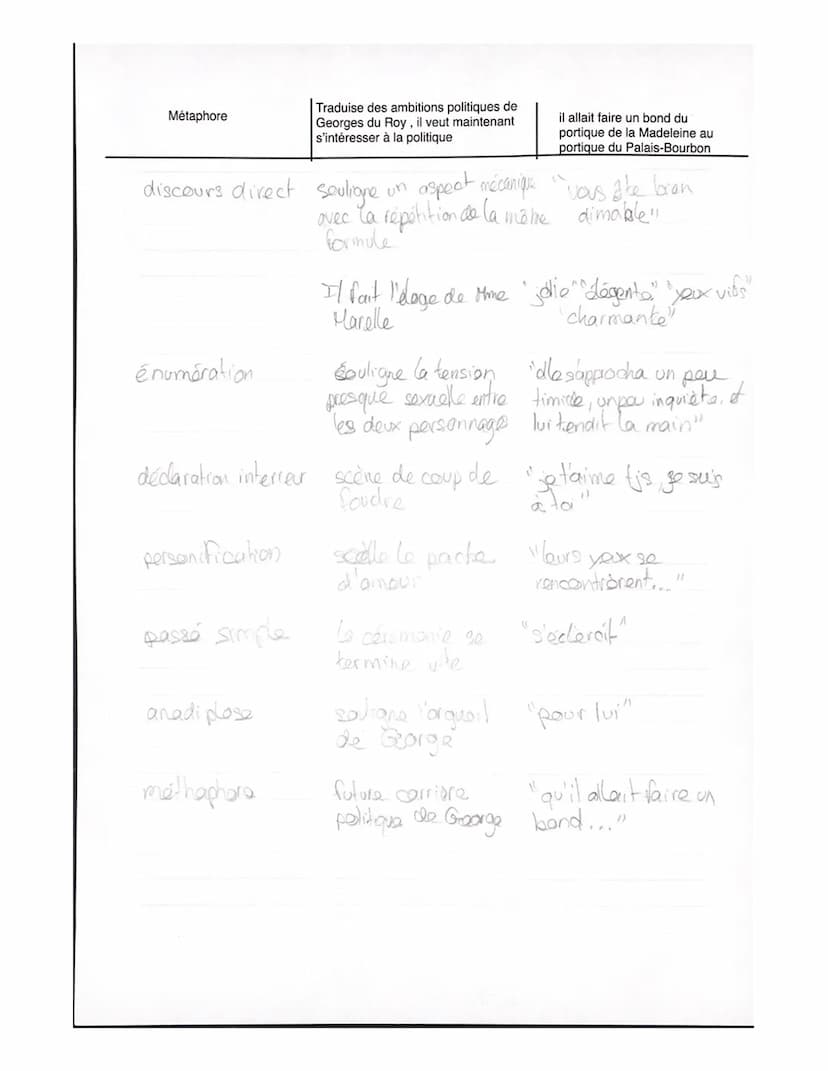 Métaphore
Traduise des ambitions politiques de
Georges du Roy , il veut maintenant
s'intéresser à la politique
il allait faire un bond du
portique de la Madeleine au
portique du Palais-Bourbon
discours direct
souligne un aspect mécanique
avec la répétition de la même
formule
"vous ête bien
aimable"
Il fait l'éloge de Mme
Marelle
"jolie" "élégente" "yeux vifs"
"charmante"
énumération
souligne la tension
presque sexuelle entre
les deux personnage
"elle s'approcha un peu
timide, un peu inquiète, et
lui tendit la main"
déclaration interreur
scène de coup de
foudre
"je t'aime tjs, je suis
à toi"
personification
scelle le pacte
d'amour
"leurs yeux se
rencontrèrent..."
passé simple
la cérémonie se
termine vite
anadiplose
souligne l'orgueil
de George
"pour lui"
méthaphore
future carrière
politique de George
"qu'il allait faire un
bond..."